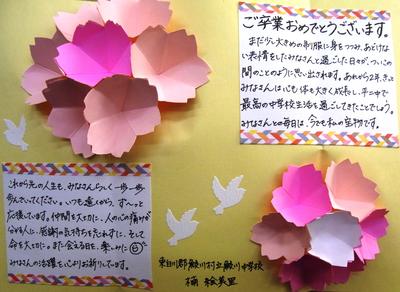 ご卒業おめでとうございます。
まだ少し大きめの制服に身をつつみ、あどけな
い表情をしたみなさんと過ごした日々が、ついこの
間のことのように思い出されます。あれから2年、きっと
みなさんは心も体も大きく成長し、平二中で
最高の中学校生活を過ごしてきたことでしょう。
みなさんとの毎日は、今でも私の宝物です。
これから先の人生も、みなさんらしく一歩一歩
歩んでいってください。いつも遠くから、ずーっと
応援しています。仲間を大切に、人の心の痛みが
分かる人に、感謝の気持ちを忘れずに、そして
命を大切に。また会える日を、楽しみに
みなさんの活躍を心よりお祈りしています。
東白川郡鮫川村立鮫川中学校
楠 絵美里